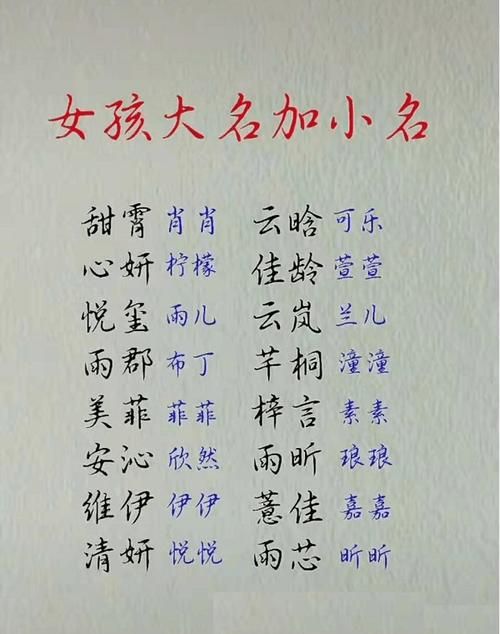 女孩大名加小名
甜霄 肖肖 云晗 可乐
心妍 柠檬 佳龄 萱萱
悦玺 雨儿 云岚 兰儿
雨郡 布丁 芊桐 潼潼
美菲 菲菲 梓言 素素
安沁 欣然 雨昕 琅琅
维伊 伊伊 薏佳 嘉嘉
清妍 悦悦 雨芯 昕昕